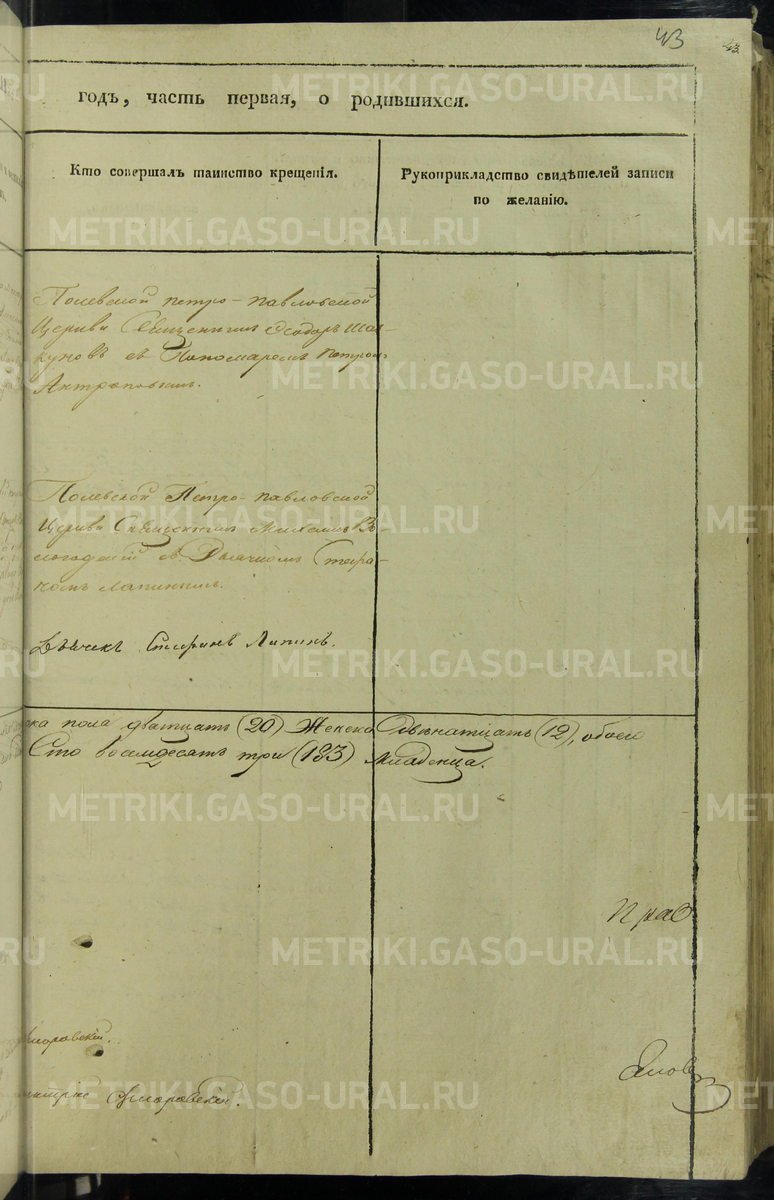 43
43
годъ, часть первая, о родившихся.
Кто совершалъ таинство крещенія.
Рукоприкладство свидѣтелей записи
по желанію.
Полевской петро-павловской
Церкви Священникъ Ѳеодоръ Шал-
куновъ съ Пономаремъ Петромъ
Антроповымъ.
Полевской Петро-павловской
Церкви Священникъ Михаилъ Во-
логодскій съ Дьячкомъ Стефа-
номъ Лапинымъ.
Дьячекъ Стефанъ Лапинъ.
ска пола дватцать (20) Женска Двѣнатцать (12), обоего
Сто восамдесятъ три (183) младенца.
METRIKI.GASO-URAL.RU